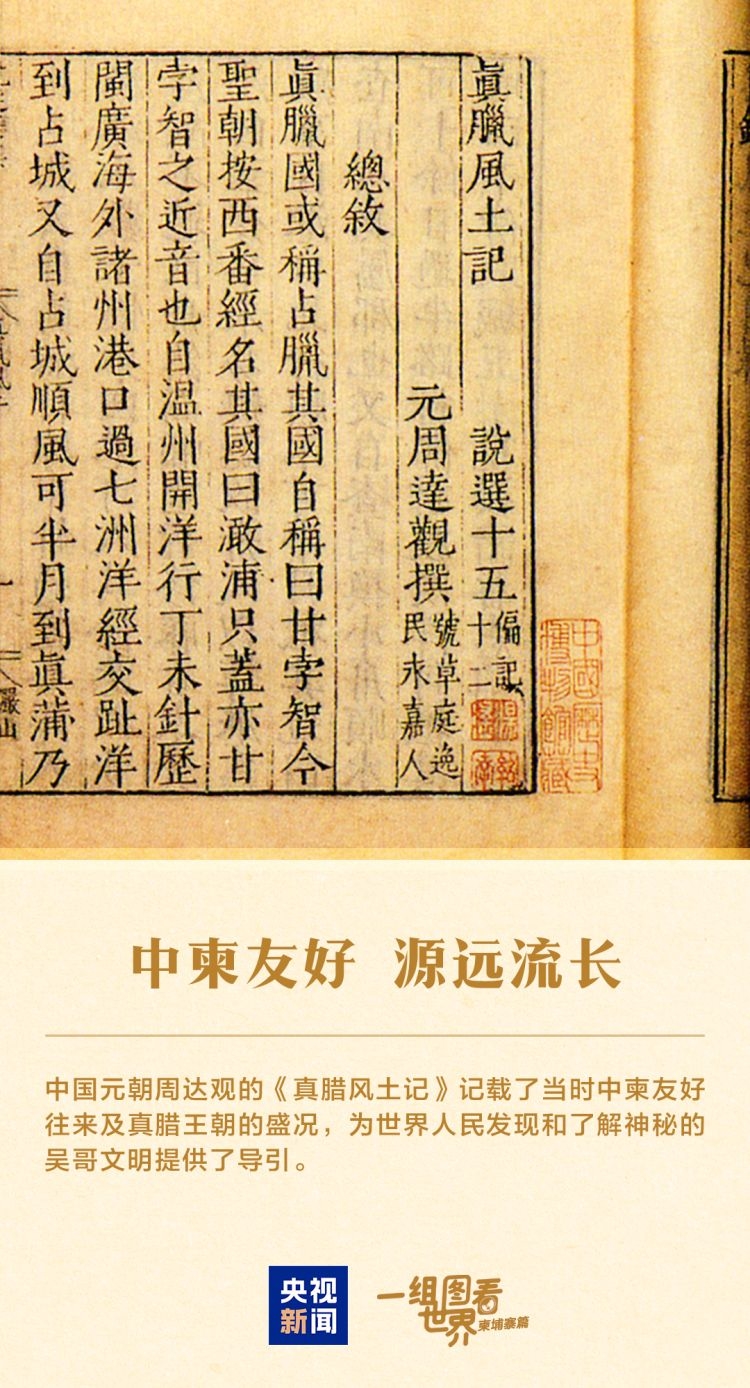 真臘風土記 說選十五 偏記十二
元周達觀撰 號草庭逸民永嘉人
總敘
真臘國或稱占臘其國自稱曰甘孛智今
聖朝按西番經名其國曰澉浦只蓋亦甘
孛智之近音也自温州開洋行丁未針歷
閩廣海外諸州港口過七洲洋經交趾洋
到占城又自占城順風可半月到真蒲乃
中國歷史博物館藏
中柬友好 源远流长
中国元朝周达观的《真腊风土记》记载了当时中柬友好
往来及真腊王朝的盛况，为世界人民发现和了解神秘的
吴哥文明提供了导引。
央视
新闻
一组图看
世界
柬埔寨篇